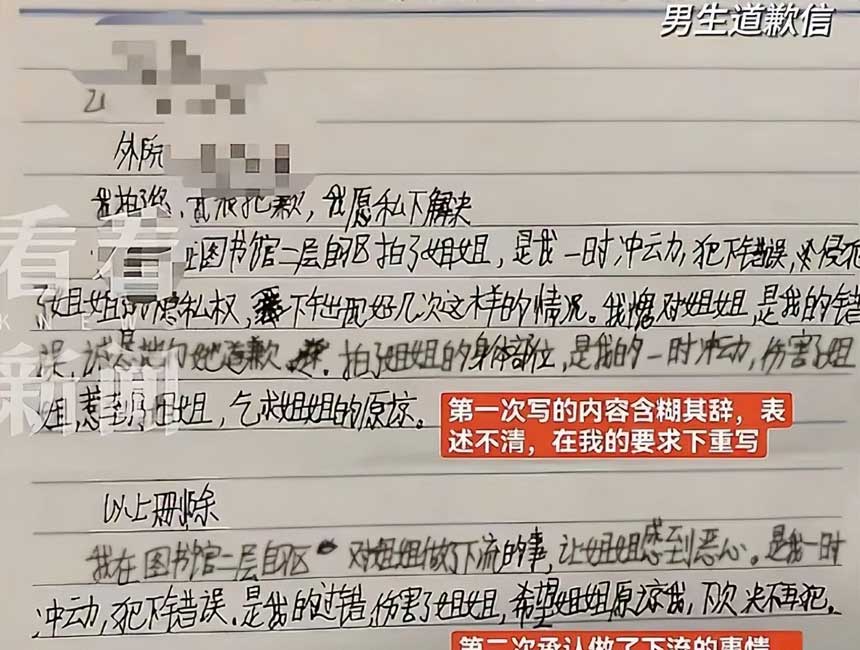 男生道歉信
外院
我拍了您,我很抱歉,我愿私下解决
图书馆二层自区拍了姐姐,是我一时冲云力,犯下错误,侵犯
了姐姐的隐私权,下午出现好几次这样的情况。我愧对姐姐,是我的错
误,诚恳地向她道歉。拍了姐姐的身体部位,是我的一时冲动,伤害了姐
姐,惹到了姐姐,乞求姐姐的原谅。
第一次写的内容含糊其辞,表
述不清,在我的要求下重写
以上删除
我在图书馆二层自区 对姐姐做了下流的事,让姐姐感到恶心。是我一时
冲动,犯下错误。是我的过错,伤害了姐姐,希望姐姐原谅我,下次决不再犯。
第二次承认做了下流的事情
看看
KNEWS
新闻